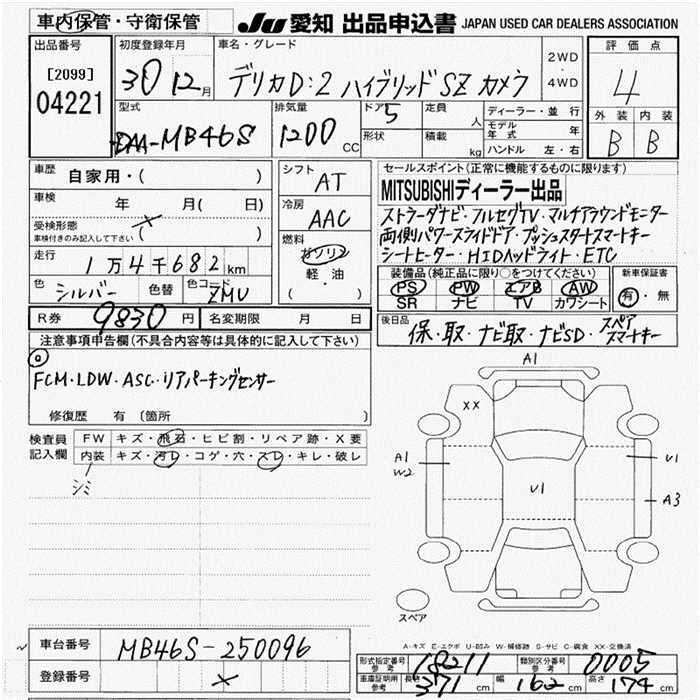 車内保管・守衛保管
JU 愛知 出品申込書 JAPAN USED CAR DEALERS ASSOCIATION
出品番号
[2099]
04221
初度登録年月
30 12月
車名・グレード
デリカD:2 ハイブリッドSZ カメラ
2WD
・
4WD
評価点
4
外装 内装
B B
型式
DAA-MB46S
排気量
1200 CC
ドア 5
形状
定員 人
積載 kg
ディーラー・並行
モデル年式 年
ハンドル 左・右
車歴 自家用・( )
車検 年 月( 日)
受検形態
車検付きのみ記入して下さい ( )
走行 1万4千682km
色 シルバー 色替 色コード ZMU
シフト AT
冷房 AAC
燃料
ガソリン
軽・油
( )
セールスポイント(正常に機能するものに限ります)
MITSUBISHIディーラー出品
ストラーダナビ・フルセグTV・マルチアラウンドモニター
両側パワースライドドア・プッシュスタートスマートキー
シートヒーター・HIDヘッドライト・ETC
装備品(純正品に限り○をつけてください)
PS PW エアB AW
SR ナビ TV カワシート
新車保証書
有・無
R券 9830円 名変期限 月 日
後日品 保・取・ナビ取・ナビSD・スペアスマートキー
注意事項申告欄(不具合内容等は具体的に記入して下さい)
FCM・LDW・ASC・リアパーキングセンサー
修復歴 有(箇所 )
検査員記入欄
FW キズ・飛石・ヒビ割・リペア跡・X要
内装 キズ・汚レ・コゲ・穴・スレ・キレ・破レ
シミ
A1
XX
A1
W2
U1
U1
A3
スペア
A-キズ E-エクボ U-凹み W-補修跡 S-サビ C-腐食 XX-交換済
車台番号 MB46S-250096
登録番号 ×
形式指定番号 参考 18211 類別区分番号 参考 0005
車庫証明用 参考 長さ 371cm 幅 162cm 高さ 174cm